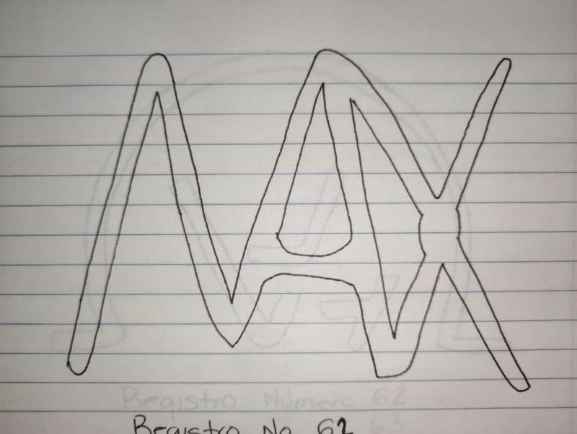 MAX
Registro Número 62
Registro No 62